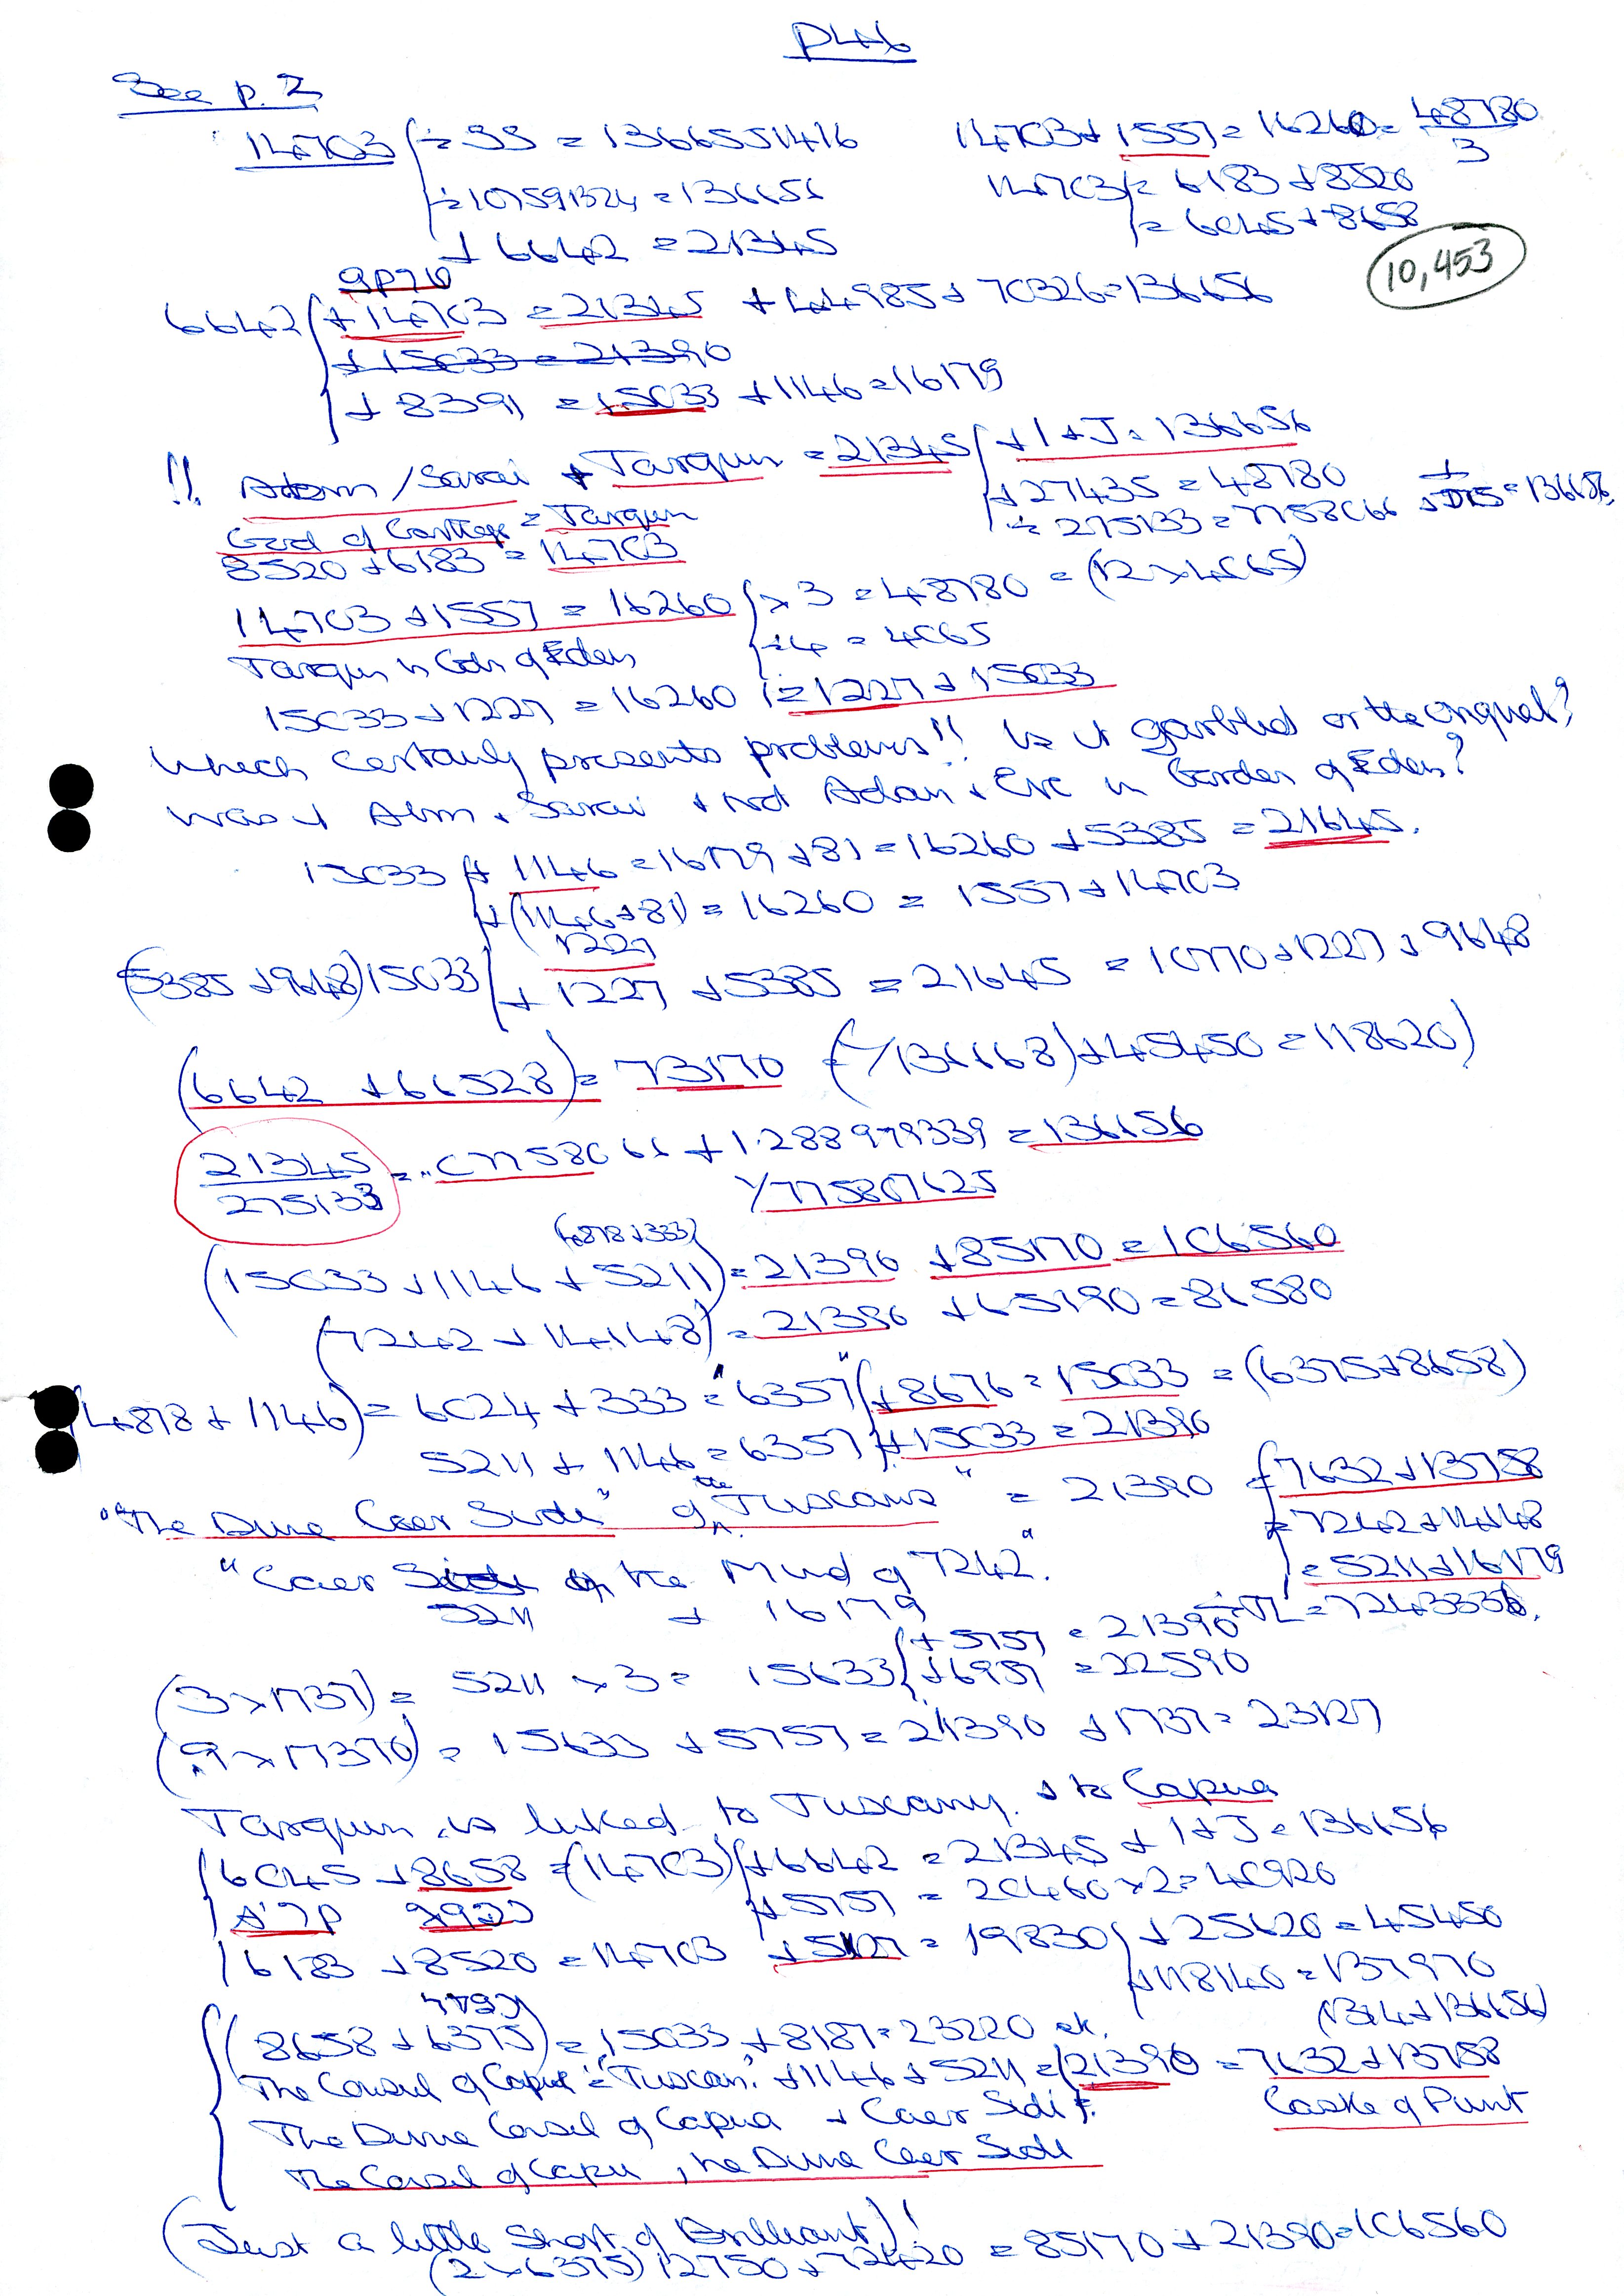 P46
See p. 2
14703 ÷ 99 = 1366551416
14703 + 1557 = 16260 = 48780
3
÷ 107591324 = 136656
14703 = 6183 + 8520
+ 6642 = 21345
= 6045 + 8658
10,453
6642 + 14703 = 21345 + 44985 + 70326 = 136656
+ 15033 = 21390
+ 8391 = 15033 + 1146 = 16179
!! / Sarai + Tarquin = 21345 + 1 + J = 136656
+ 27435 = 48780
God of = Tarquin
÷ 275133 = 7758066 = 136656
8520 + 6183 = 14703
14703 + 1557 = 16260 × 3 = 48780 = (12 × 4065)
÷ 4 = 4065
Tarquin in Gdn of Eden
15033 + 1227 = 16260 = 1227 + 15033
Which certainly presents problems!! Is it garbled or the original?
Was it Abm + Sarai & not Adam & Eve in Garden of Eden?
15033 + 1146 = 16179 + 81 = 16260 + 5385 = 21645.
+ (1146 + 81) = 16260 = 1557 + 14703
1227
(5385 + 9648) 15033 + 1227 + 5385 = 21645 = 10770 + 1227 + 9648
(6642 + 66528) = 73170 (= 1/136668) + 45450 = 118620)
21345
275133
= .0775806 + 1.288979339 = 136656
1/775807625
(4878 + 333)
(15033 + 1146 + 5211) = 21390 + 85170 = 106560
(7242 + 14148) = 21390 + 65190 = 86580
(4878 + 1146) = 6024 + 333 = "6357" + 8676 = 15033 = (6375 + 8658)
5211 + 1146 = 6357 + 15033 = 21390
"The Dune Caer Sidi" of the "Tuscans" = 21390 = 7632 + 13758
= 7242 + 14148
"Caer Sidi of the Mud of 7242".
= 5211 + 16179
5211 + 16179
(3 × 1737) = 5211 × 3 = 15633 + 5757 = 21390
+ 6957 = 22590
(.9 × 17370) = 15633 + 5757 = 21390 + 1737 = 23127
Tarquin is linked to Tuscany. & to Capua
6045 + 8658 = (14703) + 6642 = 21345 + 1 + J = 136656
+ 5757 = 20460 × 2 = 40920
6183 + 8520 = 14703 + 5127 = 19830 + 25620 = 45450
+ 118140 = 137970
(1314 + 136656)
(8658 + 6375) = 15033 + 8187 = 23220 etc.
The Consul of Capua = "Tuscan." + 1146 + 5211 = 21390 = 7632 + 13758
The Dune Consul of Capua + Caer Sidi
Castle of Punt
The Consul of Capua, the Dune Caer Sidi
(Just a little short of Brilliant)!
(2 × 6375) 12750 + 72420 = 85170 + 21390 = 106560